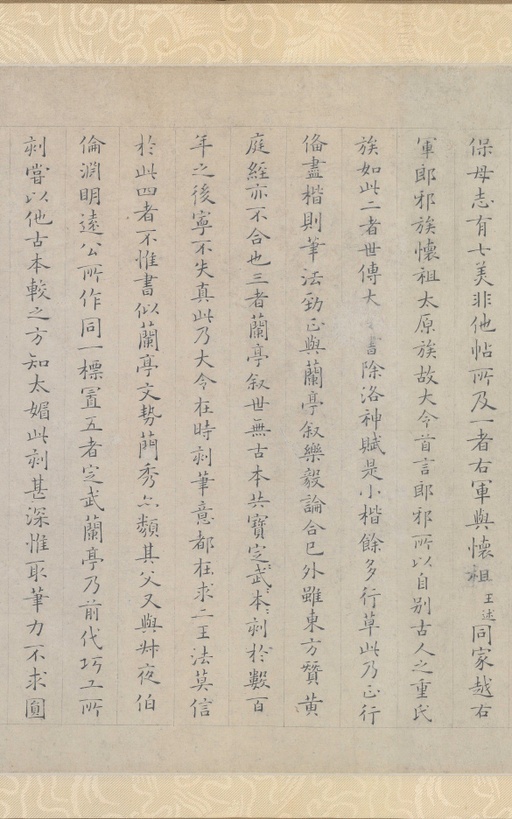 保母志有七美非他帖所及一者右軍與懷祖王述同家越右
軍郎邪族懷祖太原族故大令首言郎邪所以自别古人之重氏
族如此二者世傳大 書除洛神賦是小楷餘多行草此乃正行
俻盡楷則筆法勁正與蘭亭叙樂毅論合已外雖東方贊黄
庭經亦不合也三者蘭亭叙世無古本共寶定武本刻於數百
年之後寧不失真此乃大令在時刻筆意都在求二王法莫信
於此四者不惟書似蘭亭文勢蕳秀亦類其父又與叔夜伯
倫淵明遠公所作同一標置五者定武蘭亭乃前代巧工所
刻嘗以他古本較之方知太媚此刻甚深惟取筆力不求圓